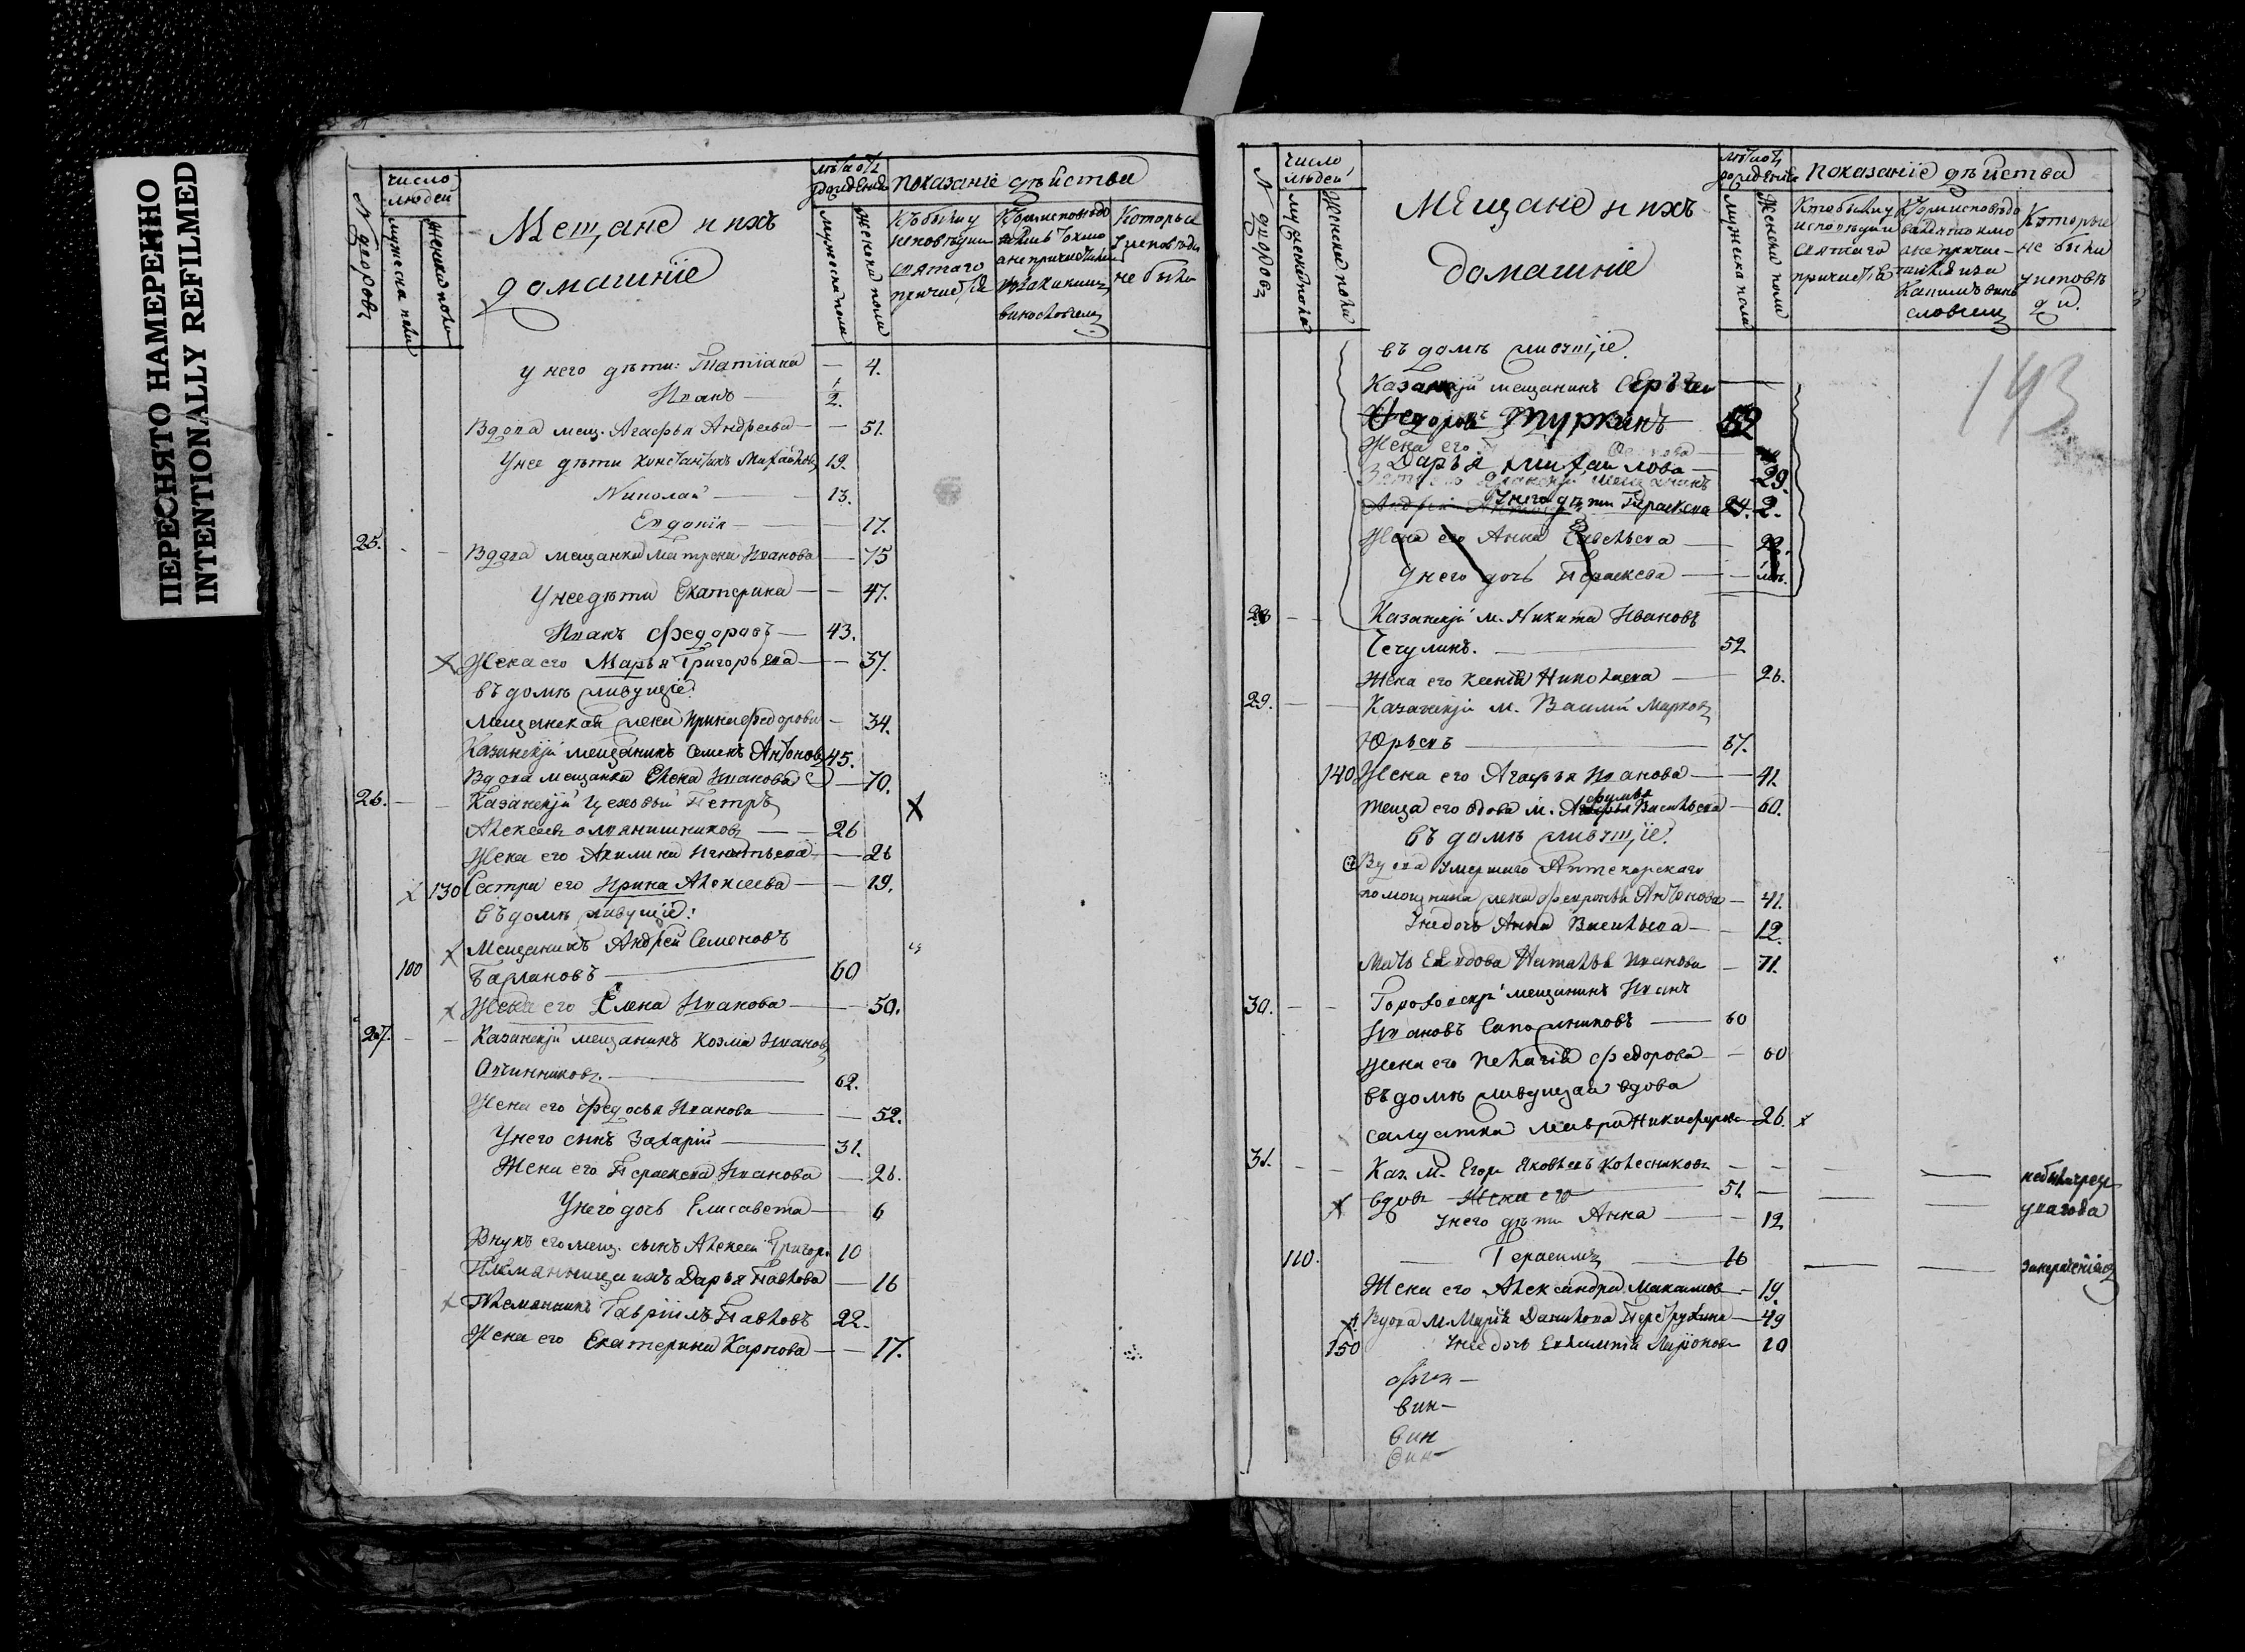 ПЕРЕСНЯТО НАМЕРЕННО
INTENTIONALLY REFILMED
N дворовъ
число людей
мужеска пола
женска пола
Мещане и ихъ
домашніе
лѣта отъ рожденія
мужеска пола
женска пола
показаніе дѣйства
Кто были у исповѣди и святаго причастія
Кои исповѣдовались токмо а не причастились и за какимъ винословіемъ
Которые у исповѣди не были
у него дѣти: Татіана — 4.
Иванъ — 2.
Вдова мещ. Агафья Андреева — 51.
У нее дѣти Константинъ Михайловъ 19.
Николай — 13.
Евдокія — 17.
25. Вдова мещанка Матрена Иванова — 75
У нее дѣти Екатерина — 47.
Иванъ Федоровъ — 43.
Жена его Марья Григорьева — 37.
въ домѣ живущіе:
Мещанская жена Ирина Федорова — 34.
Казанскій мещанинъ Семенъ Антоновъ 45.
Вдова мещанка Елена Иванова — 70.
26. Казанскій цеховый Петръ
Алексеевъ — 26
Жена его Акилина Игнатьева — 26
130 Сестра его Ирина Алексеева — 19.
въ домѣ живущіе:
Мещанинъ Андрей Семеновъ
100 Барановъ — 60
Жена его Елена Иванова — 50.
27. Казанскій мещанинъ Козма Ивановъ
Овчинниковъ. — 62.
Жена его Федосья Иванова — 52.
У него сынъ Захарій — 31.
Жена его Параскева Иванова — 26.
У него дочь Елисавета — 6
Внукъ его мещ. сынъ Алексей Григор. 10
Племянница ихъ Дарья Павлова — 16
Племянникъ Гавріилъ Павловъ 22.
Жена его Екатерина Карпова — 17.
N дворовъ
число людей
мужеска пола
женска пола
Мещане и ихъ
домашніе
лѣта отъ рожденія
мужеска пола
женска пола
показаніе дѣйства
Кто были у исповѣди и святаго причастія
Кои исповѣдовались токмо а не причастились и за какимъ винословіемъ
Которые не были у исповѣди.
143
въ домѣ живущіе.
Казанскій мещанинъ Сергѣй
Федоровъ Туркинъ
Жена его
Дарья Михайлова — 29.
У него дѣти Параскева 2.
Жена его Анна Савельева —
У него дочь Параскева —
28 Казанскій м. Никита Ивановъ
Чечулинъ. — 52
Жена его Ксенія Николаева — 26.
29. Казанскій м. Василій Марковъ
Юрьевъ — 37.
140 Жена его Агафья Иванова — 41.
теща его вдова м. Васильева — 60.
въ домѣ живущіе.
Вдова умершаго Аптекарскаго
помощника жена Февронія Антонова — 41.
У нее дочь Анна Васильева — 12.
Мать Ея вдова Наталья Иванова — 71.
30. мещанинъ Иванъ
Ивановъ Сапожниковъ — 60
жена его Пелагія Федорова — 60
въ домѣ живущая вдова
салдатка Мавра Никифорова 26.
31. Каз. м. Егоръ Яковлевъ Колесниковъ
вдовъ Жена его 51. — не были чрез
у него дѣти Анна — 12
110. Герасимъ — 16
Жена его Александра Максимов — 19.
Вдова м. Марія Данилова — 49
150 У нее дочь 10
вин—
вин
вин